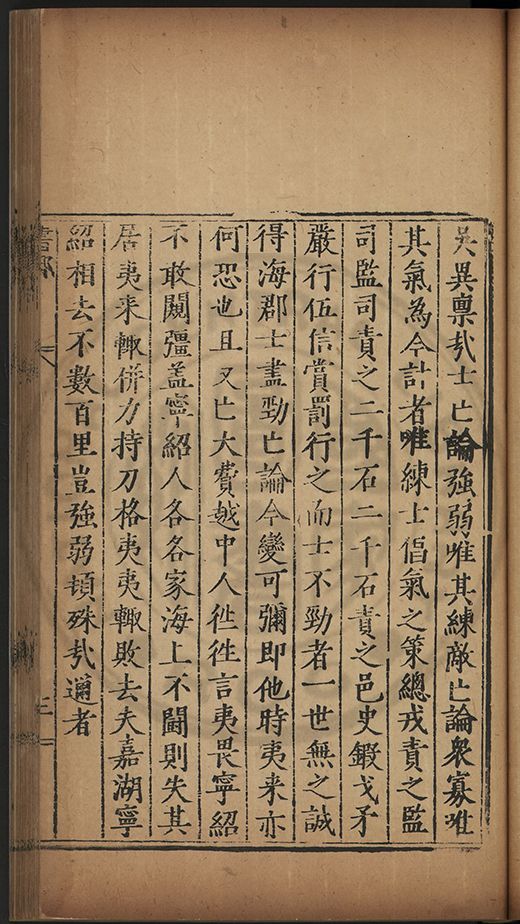 吴異禀㢤士亡論強弱唯其練敵亡論衆寡唯
其氣為今計者唯練士倡氣之策總戎責之監
司監司責之二千石二千石責之邑史鍜戈矛
嚴行伍信賞罰行之而士不勁者一世無之誠
得海郡士盡勁亡論今變可彌即他時夷来亦
何恐也且又亡大費越中人徃徃言夷畏寧紹
不敢闚彊盖寧紹人各各家海上不鬭則失其
居夷来輙併力持刀格夷夷輙敗去夫嘉湖寧
紹相去不數百里豈強弱頓殊㢤邇者
三